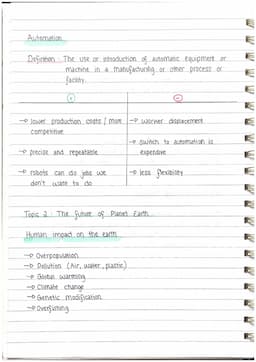 Automation
Definition: The use or introduction of automatic equipment or
machine in a manufacturing or other process or
facility.
+ −
→ lower production costs / more
competitive
→ worker displacement
→ switch to automation is
expensive
→ precise and repeatable
→ robots can do jobs we
don't want to do
→ less flexibility
Topic 2: The future of Planet Earth
Human impact on the earth
→ Overpopulation
→ Pollution (Air, water, plastic)
→ Global warming
→ Climate change
→ Genetic modification
→ Overfishing